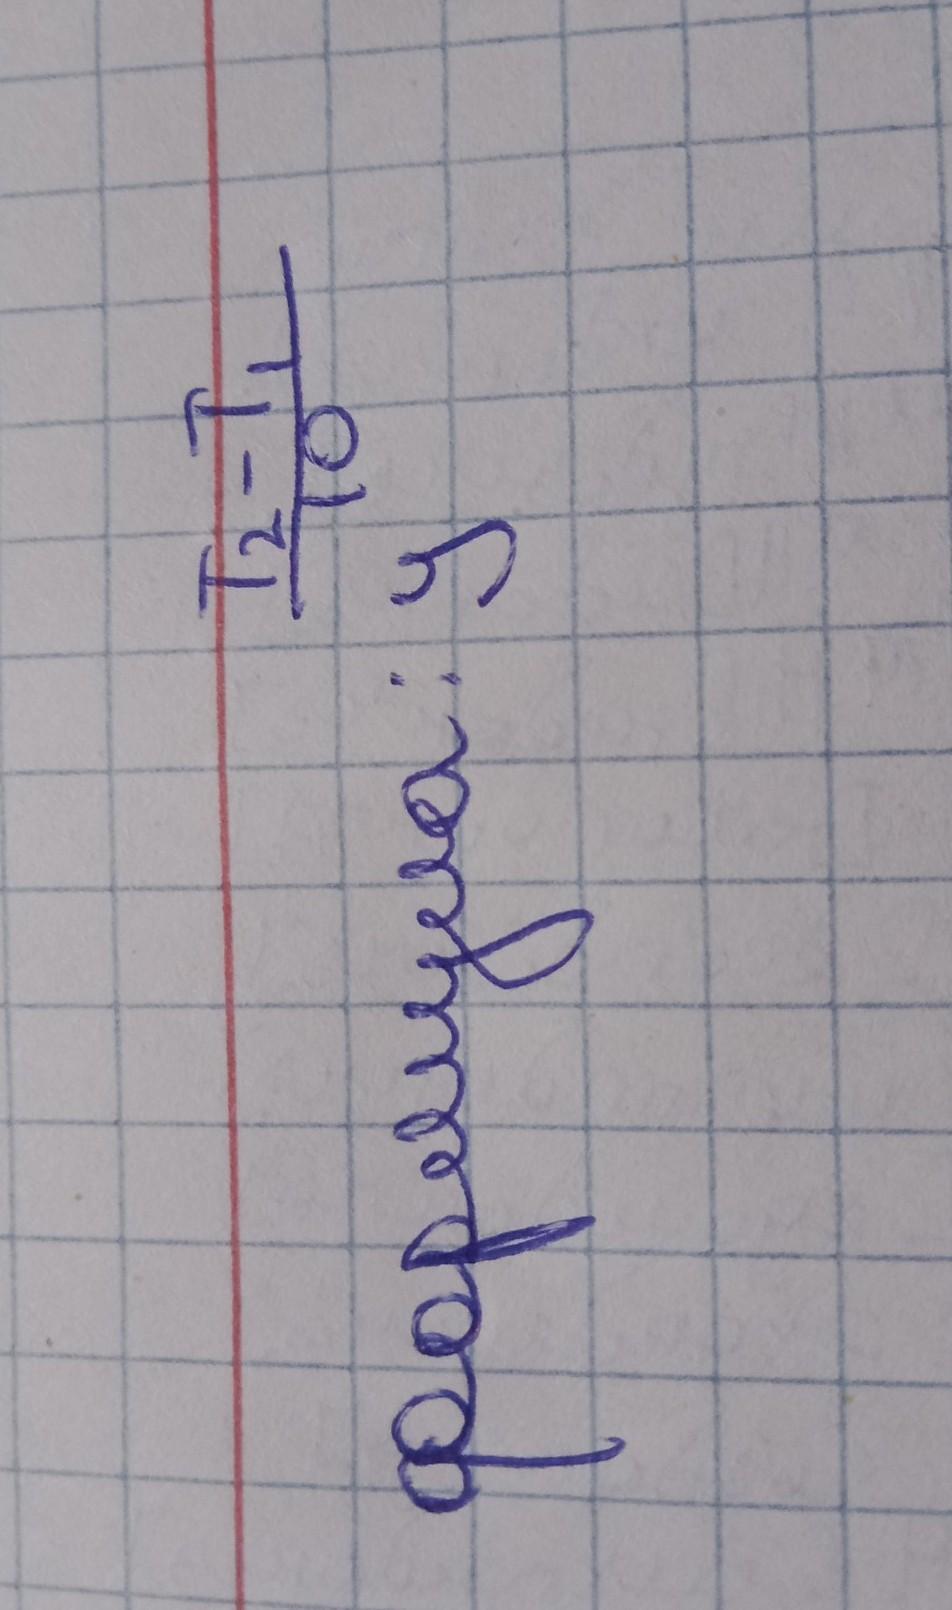 формула: y^{\frac{T_2 - T_1}{10}}